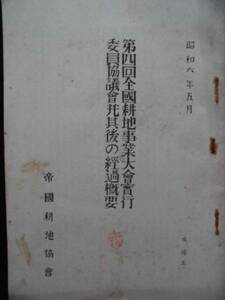 昭和六年五月
第四回全國耕地事業大會實行
委員協議會幷其後の經過概要
帝國耕地協會